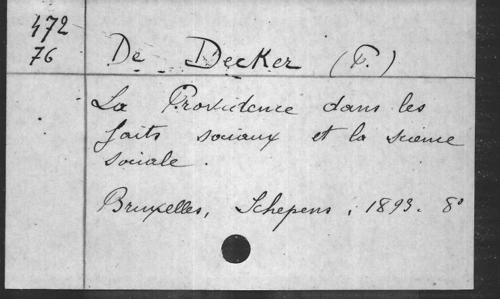 472
76
De Decker (F.)
La Providence dans les
faits sociaux et la science
sociale.
Bruxelles, Schepens, 1893. 8°